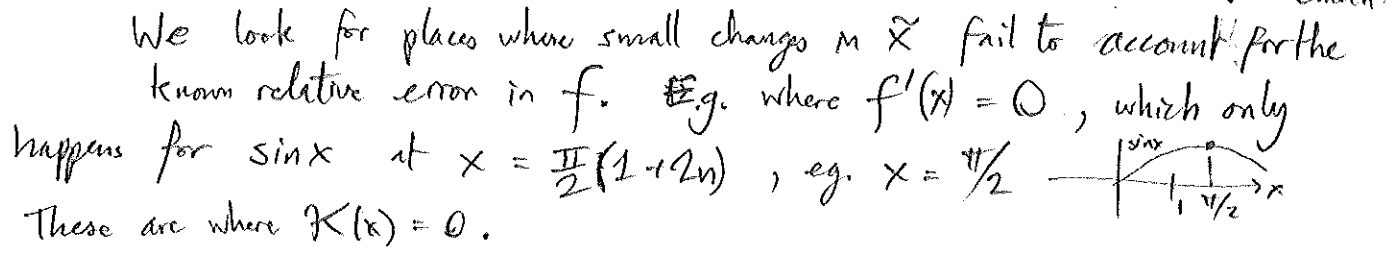 We look for places where small changes in x̃ fail to account for the
known relative error in f. E.g. where f'(x) = 0, which only
happens for sin x at x = π/2 (1+2n), eg. x = π/2
sin x
1 π/2 x
These are where K(x) = 0.